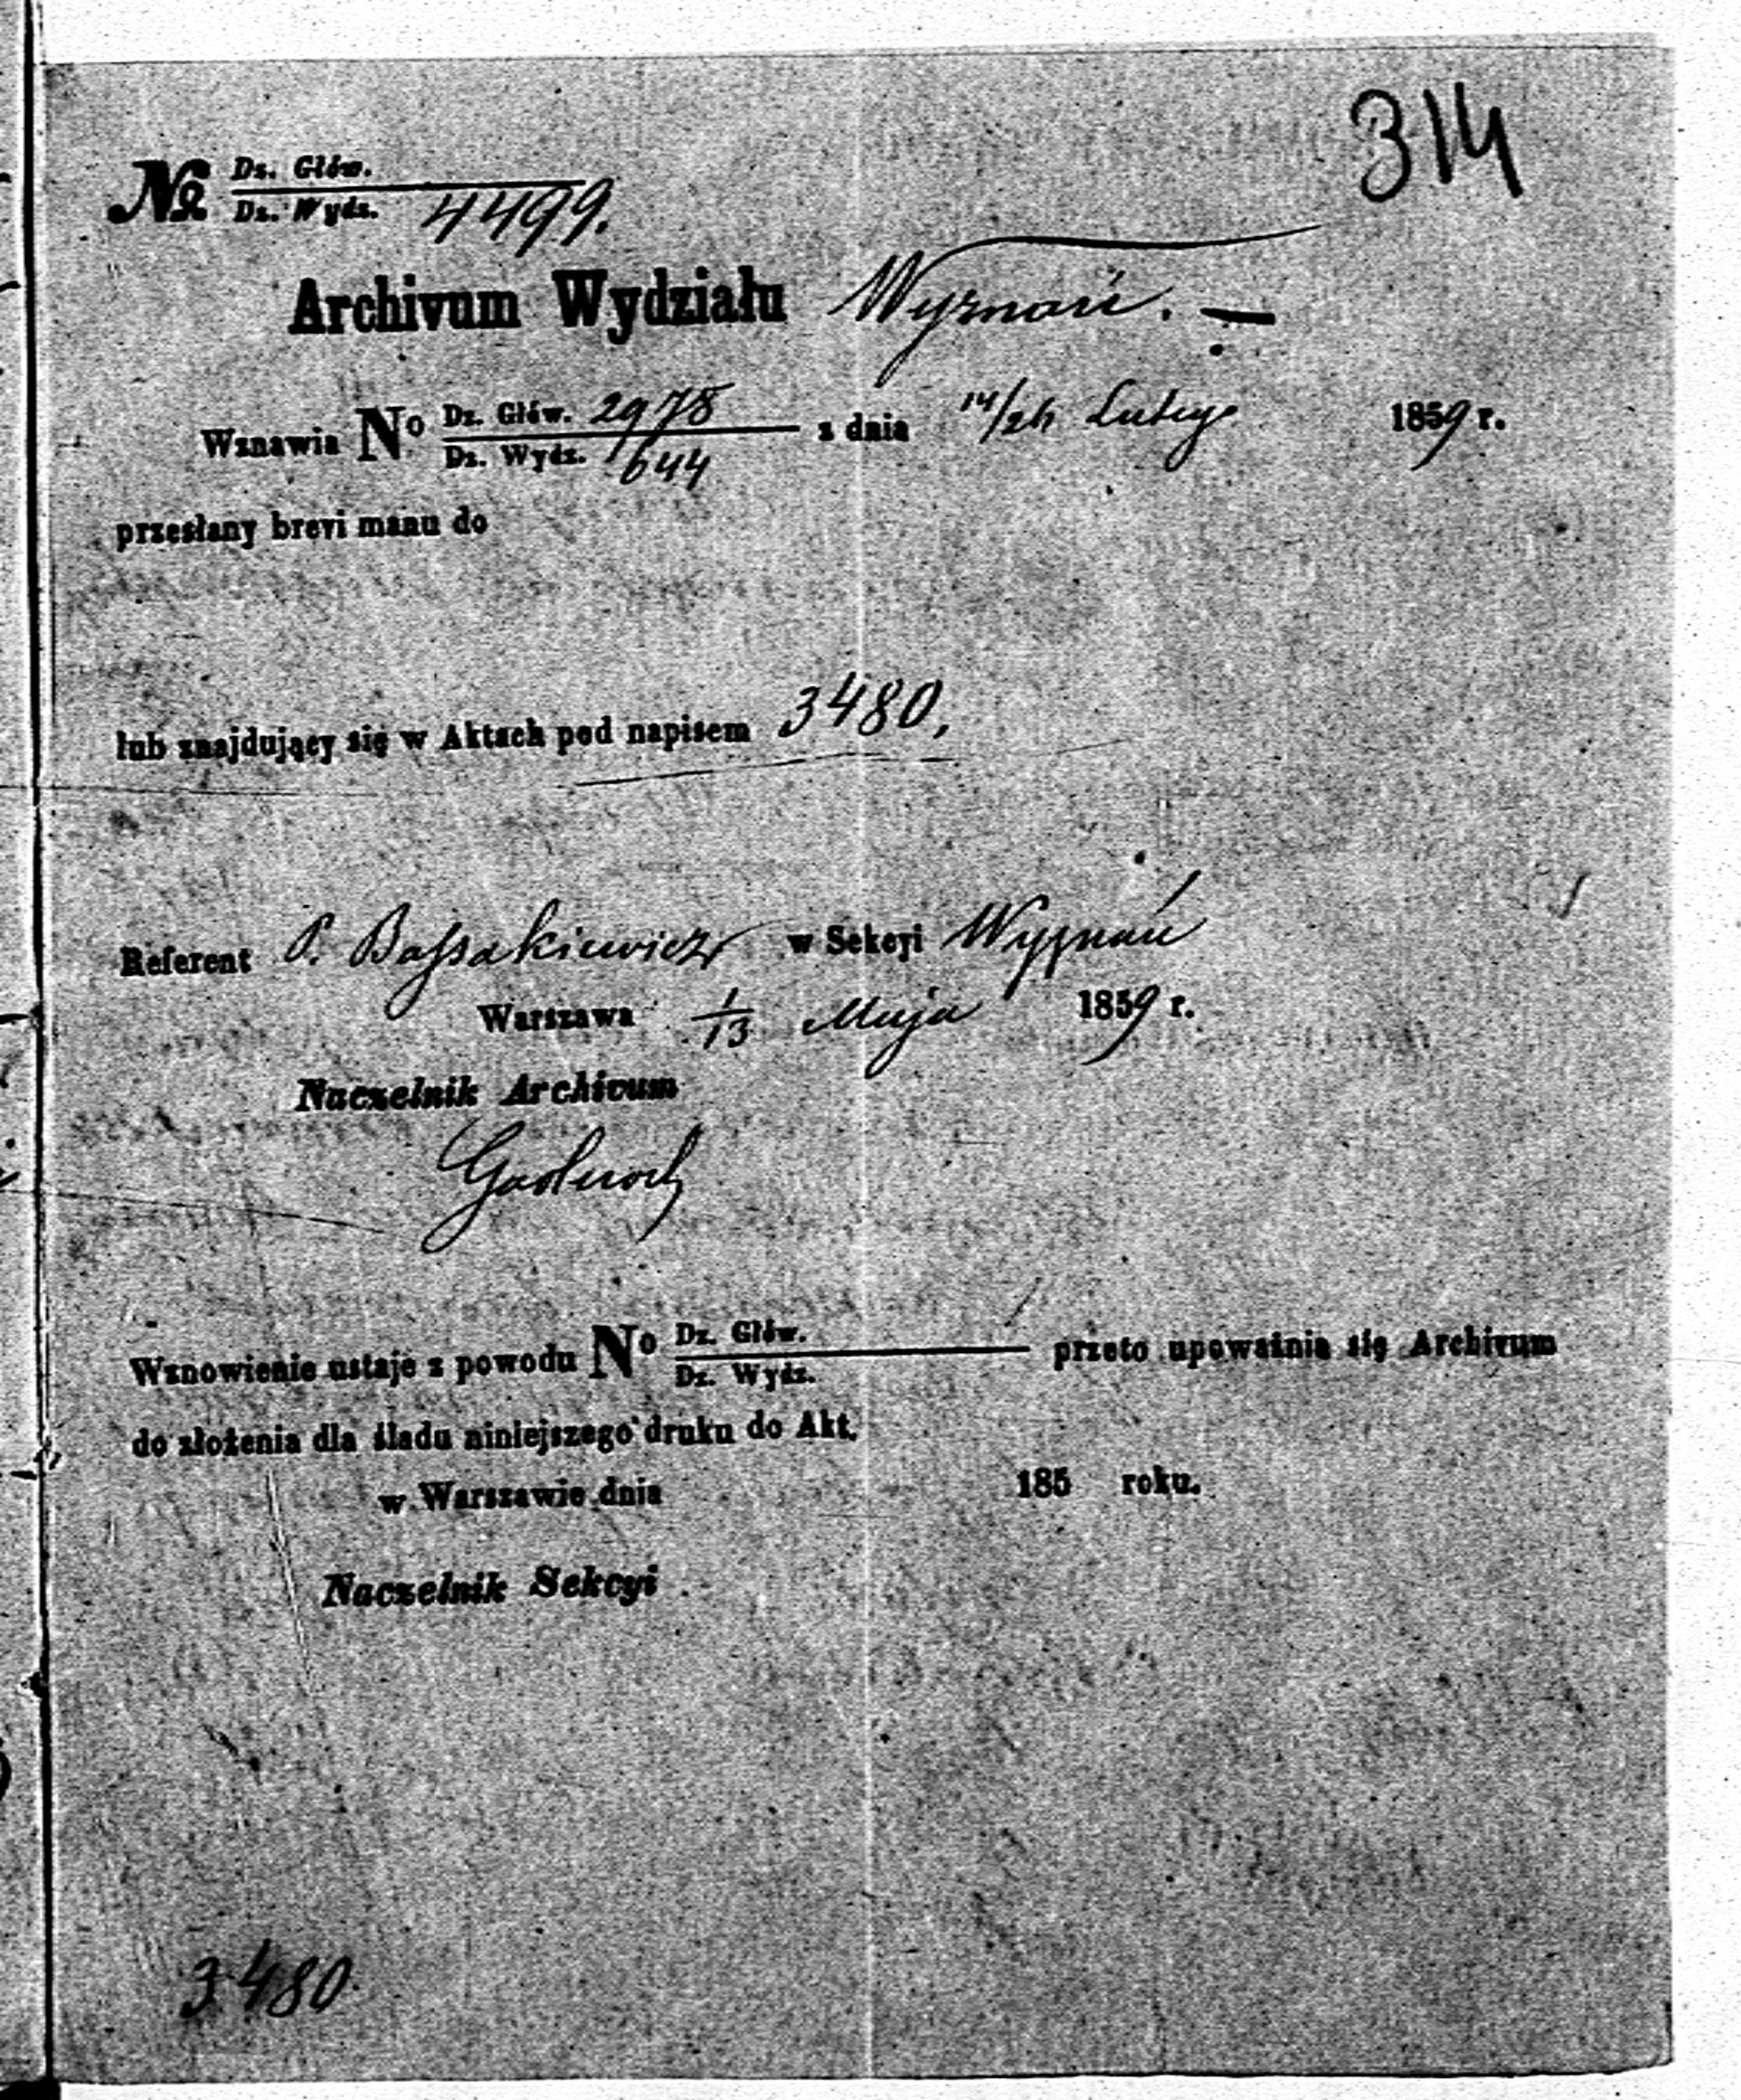 314
№ Dz. Głów.
Dz. Wydz. 4499.
Archivum Wydziału Wyznań. —
Wznawia No Dz. Głów. 2978 z dnia 14/26 Lutego 1859 r.
Dz. Wydz. 1644
przesłany brevi manu do
lub znajdujący się w Aktach pod napisem 3480,
Referent P. Bassakiewicz w Sekcyi Wyznań
Warszawa 1/13 Maja 1859 r.
Naczelnik Archivum
Wznowienie ustaje z powodu No Dz. Głów. przeto upoważnia się Archivum
Dz. Wydz.
do złożenia dla śladu niniejszego druku do Akt.
w Warszawie dnia 185 roku.
Naczelnik Sekcyi
3480